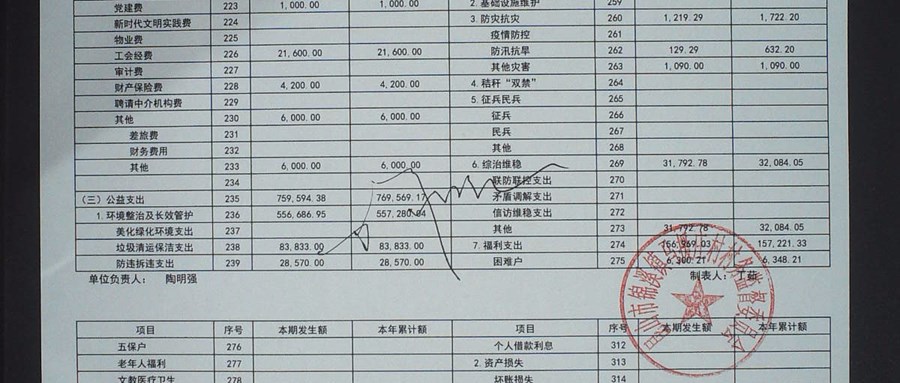 党建费 223 1,000.00 1,000.00 2. 基础设施维护 259
新时代文明实践费 224 3. 防灾抗灾 260 1,219.29 1,722.20
物业费 225 疫情防控 261
工会经费 226 21,600.00 21,600.00 防汛抗旱 262 129.29 632.20
审计费 227 其他灾害 263 1,090.00 1,090.00
财产保险费 228 4,200.00 4,200.00 4. 秸秆“双禁” 264
聘请中介机构费 229 5. 征兵民兵 265
其他 230 6,000.00 6,000.00 征兵 266
差旅费 231 民兵 267
财务费用 232 其他 268
其他 233 6,000.00 6,000.00 6. 综治维稳 269 31,792.78 32,084.05
234 联防联控支出 270
(三)公益支出 235 759,594.38 769,569.17 矛盾调解支出 271
1. 环境整治及长效管护 236 556,686.95 557,280.04 信访维稳支出 272
美化绿化环境支出 237 其他 273 31,792.78 32,084.05
垃圾清运保洁支出 238 83,833.00 83,833.00 7. 福利支出 274 156,969.03 157,221.33
防违拆违支出 239 28,570.00 28,570.00 困难户 275 6,300.21 6,348.21
单位负责人: 陶明强 制表人: 丁茹
项目 序号 本期发生额 本年累计额 项目 序号 本期发生额 本年累计额
五保户 276 个人借款利息 312
老年人福利 277 2. 资产损失 313
文教医疗卫生 278 坏账损失 314